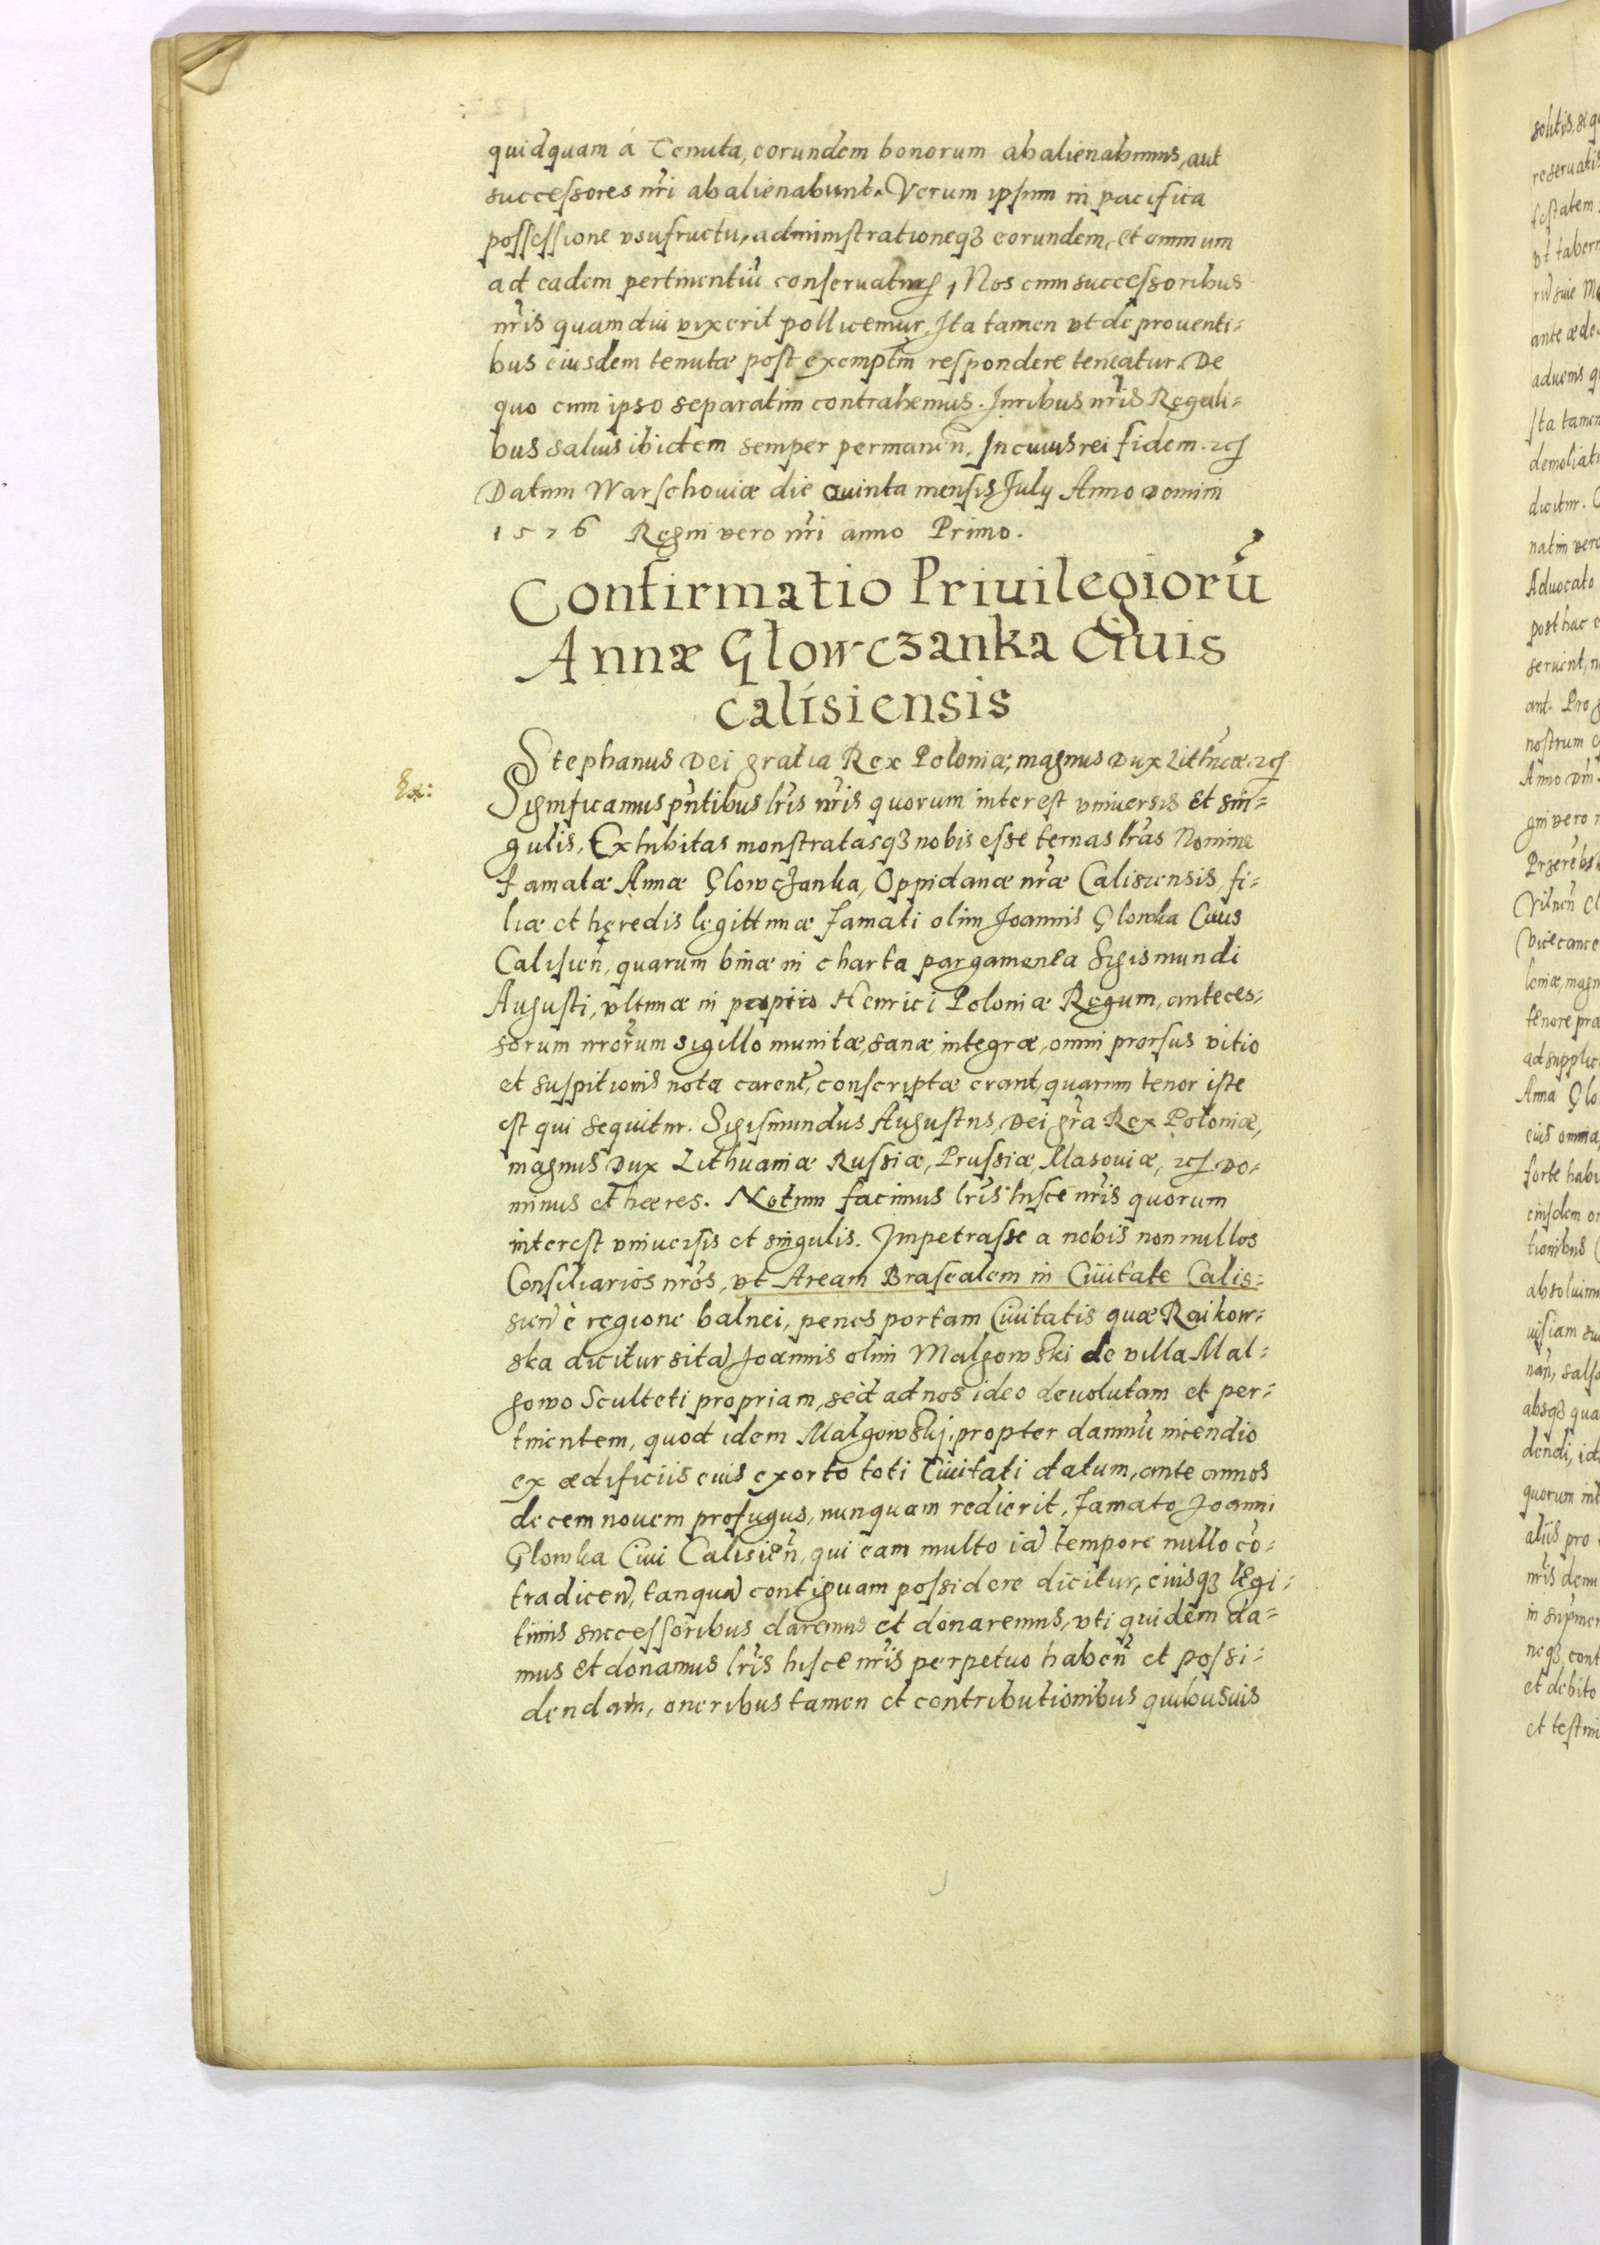 quidquam á Tenuta, eorundem bonorum abalienabimus, aut
successores nr̃i abalienabunt. Verum ipsum in pacifica
possessione vsufructu, administrationeqȝ eorundem, et omnium
ad eadem pertinentiũ conseruatur, Nos cum successoribus
nr̃is quamdiu vixerit pollicemur. Ita tamen vt de prouenti=
bus eiusdem tenutæ post exemptm̃ respondere teneatur. De
quo cum ipso separatim contrahemus. Iuribus nr̃is Regali=
bus saluis ibidem semper permaneñ. In cuius rei fidem. ꝛcʃ
Datum Warschouiæ die quinta mensis July Anno Domini
1576 Regni vero nr̃i anno Primo.
Confirmatio Priuilegiorũ
Annæ Głowczanka Ciuis
calisiensis
Stephanus Dei gratia Rex Poloniæ, magnus Dux Lithũæ. ꝛcʃ
Ex:
Significamus pñtibus lr̃is nr̃is quorum interest vniuersis et sin=
gulis, Exhibitas monstratasqȝ nobis esse ternas lr̃as Nomine
famatæ Annæ Głowcżanka, Oppidanæ nr̃æ Calisiensis, fi=
liæ et hęredis legittimæ famati olim Joannis Głowka Ciuis
Calisieñ, quarum binæ in charta pargamenea Sigismundi
Augusti, vltimæ in papiro Henrici Poloniæ Regum, anteces=
sorum nr̃orum sigillo munitæ, sanæ, integræ, omni prorsus vitio
et suspitionis nota careñt, conscriptæ erant, quarum tenor iste
est qui sequitur. Sigismundus Augustus, Dei gr̃a Rex Poloniæ,
magnus Dux Lithuaniæ Russiæ, Prussiæ, Masouiæ, ꝛcʃ Do=
minus et hæres. Notum facimus lr̃is hisce nr̃is quorum
interest vniuersis et singulis. Impetrasse a nobis nonnullos
Consiliarios nr̃os, vt Aream Brasealem in Ciuitate Calis=
sień è regione balnei, penes portam Ciuitatis quæ Raikow=
ska dicitur sitã Joannis olim Malgowski de villa Mal=
gowo Sculteti propriam, sed ad nos ideo deuolutam et per=
tinentem, quod idem Malgowskj, propter damnũ incendio
ex ædificiis eius exorto toti Ciuitati datum, ante annos
decem nouem profugus, nunquam redierit, famato Joanni
Głowka Ciui Calisieñ, qui eam multo iã tempore nullo cõ=
tradiceñ, tanquã contiguam possidere dicitur, eiusqȝ legi=
timis successoribus daremus et donaremus, vti quidem da=
mus et donamus lr̃is hisce nr̃is perpetuo habeñ et possi=
dendam, oneribus tamen et contributionibus quibusuis